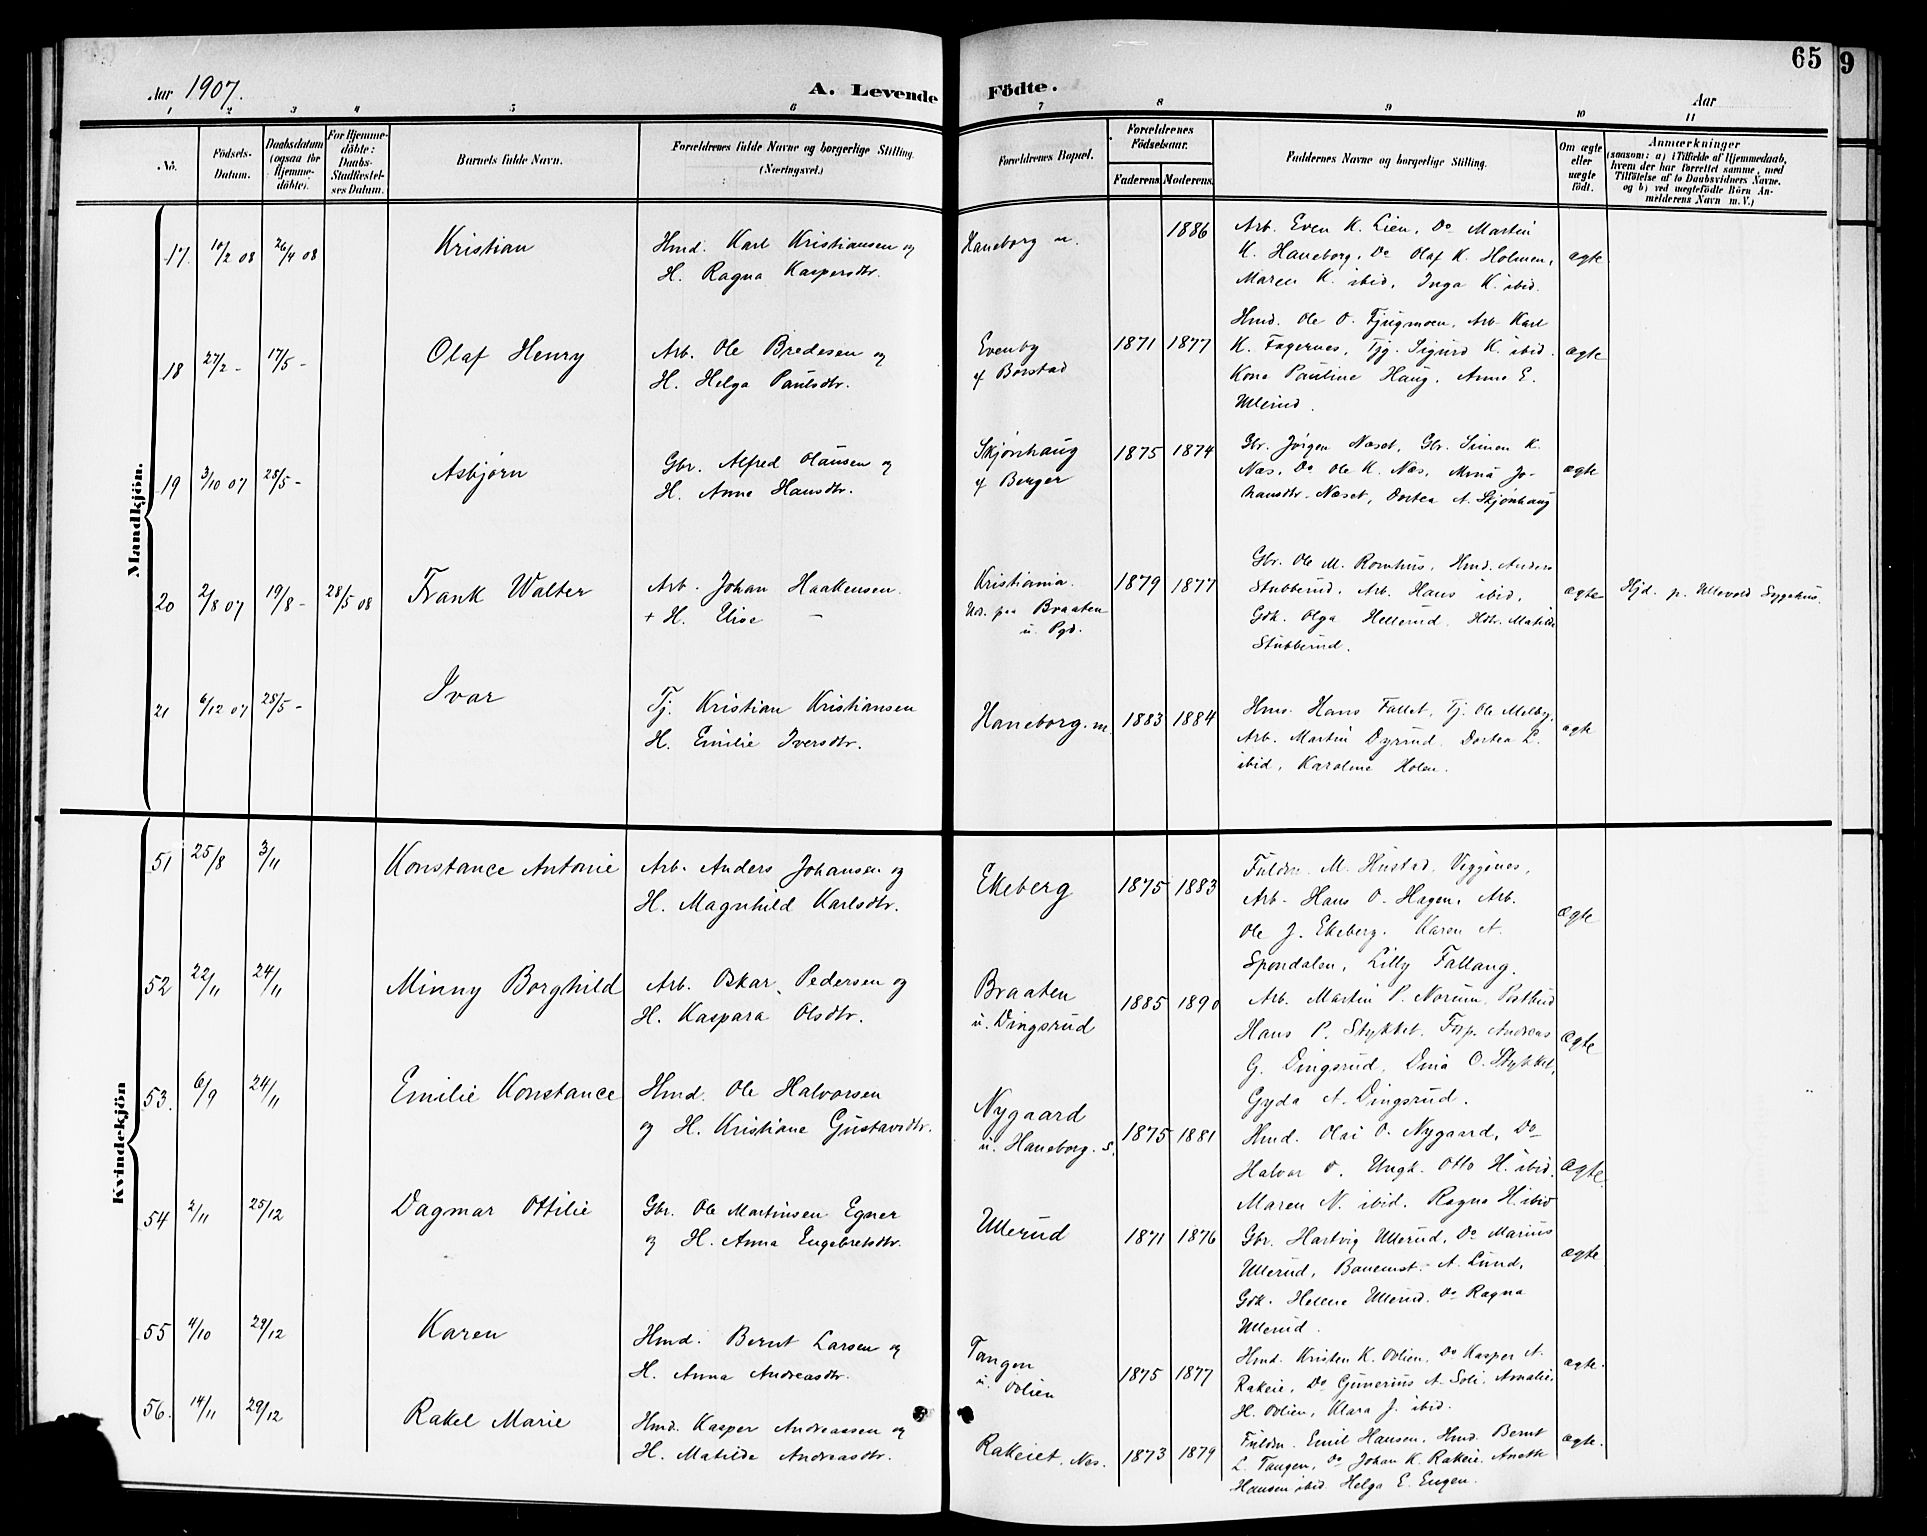 65
9
Aar 1907.
A. Levende Födte.
Aar
1 2 3 4 5 6 7 8 9 10 11
No.
Födsels-Datum.
Daabsdatum (ogsaa for Hjemme-döbte).
For Hjemme-döbte: Daabs-Stadfæstel-ses Datum.
Barnets fulde Navn.
Forældrenes fulde Navne og borgerlige Stilling. (Næringsvei.)
Forældrenes Bopæl.
Forældrenes Födselsaar.
Faderens. Moderens.
Faddernes Navne og borgerlige Stilling.
Om ægte eller uægte födt.
Anmærkninger
(saasom: a) i Tilfælde af Hjemmedaab,
hvem der har forrettet samme, med
Tilföielse af to Daabsvidners Navne,
og b) ved uægtefödte Börn An-
melderens Navn m. V.)
Mandkjön.
17. 10/2 08 26/4 08 Kristian
Hmd. Karl Kristiansen og
H. Ragna Kaspersdtr.
Haneborg n. 1886
Arb. Even K. Lien, Do Martin
K. Haneborg, Do Olaf K. Holmen,
Maren K. ibid, Inga K. ibid.
ægte
18 27/2 - 17/5 - Olaf Henry
Arb. Ole Bredesen og
H. Helga Paulsdtr.
Evenby
af Börstad
1871 1877
Hmd. Ole O. Tjugmoen, Arb. Karl
K. Fagernes, Tjg. Sigurd K. ibid.
Kone Pauline Haug, Anne E.
Ullerud.
ægte
19 3/10 07 28/5 - Asbjørn
Gbr. Alfred Olausen og
H. Anne Hansdtr.
Skjønhaug
af Berger
1875 1874
Gbr. Jørgen Næset, Gbr. Simen K.
Næs, Do Ole K. Næs, Mina Jo-
hansdtr. Næset, Dortea A. Skjønhaug
ægte
20 2/8 07 19/8 - 28/5 08 Frank Walter
Arb. Johan Haakensen
+ H. Elise —
Kristiania.
Udr. paa Braaten
u. Pgd.
1879 1877
Gbr. Ole M. Romhus, Hmd. Anders
Stubberud, Arb. Hans ibid,
Gdk. Olga Hellerud, Hdtr. Matilde
Stubberud.
ægte Hjd. p. Ullevold Sygehus.
21 6/12 07 28/5 - Ivar
Tj. Kristian Kristiansen
H. Emilie Iversdtr.
Haneborg. m. 1883 1884
Hmd. Hans Fallet, Tj. Ole Melby,
Arb. Martin Dyrud, Dortea L.
ibid, Karoline Holen.
ægte
Kvindekjön
51 25/8 3/11 Konstance Antonie
Arb. Anders Johansen og
H. Magnhild Karlsdtr.
Ekeberg 1875 1883
Fuldm. M. Hustad, Viggenes,
Arb. Hans O. Hagen, Arb.
Ole J. Ekeberg. Karen A.
Spondalen, Lilly Fallang.
ægte
52 22/11 24/11 Minny Borghild
Arb. Oskar Pedersen og
H. Kaspara Olsdtr.
Braaten
u. Dingsrud
1885 1890
Arb. Martin P. Norum, Postbud
Hans P. Stykket. Forp. Andreas
G. Dingsrud, Dina O. Stykket,
Gyda A. Dingsrud.
ægte
53. 6/9 24/11 Emilie Konstance
Hmd. Ole Halvorsen
og H. Kristiane Gustavsdtr.
Nygaard
u. Haneborg. s.
1875 1881
Hmd. Olai O. Nygaard, Do
Halvor O. Ungh. Otto H. ibid.
Maren N. ibid. Ragna H. ibid
ægte.
54 2/11 25/12 Dagmar Ottilie
Gbr. Ole Martinsen Egner
og H. Anna Engebretsdtr.
Ullerud 1871 1876
Gbr. Hartvig Ullerud, Do Marius
Ullerud, Banemst. A. Lund,
Gdk. Helene Ullerud. Do Ragna
Ullerud.
ægte
55 4/10 29/12 Karen
Hmd. Bernt Larsen og
H. Anna Andreasdtr.
Tangen
u. Odlien
1875 1877
Hmd. Kristen K. Odlien, Do Kasper A.
Rakeie, Do Gunerius A. Soli, Amalie,
H. Odlien, Klara J. ibid.
ægte.
56. 14/11 29/12 Rakel Marie
Hmd. Kasper Andreassen og
H. Matilde Andreasdtr.
Rakeiet, Næs. 1873 1879
Fuldm. Emil Hansen, Hmd. Bernt
L. Tangen, Do Johan K. Rakeie. Anette
Hansen ibid. Helga E. Engen.
ægte.